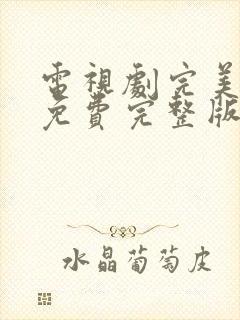 電視劇完美
免費完整版
水晶葡萄皮